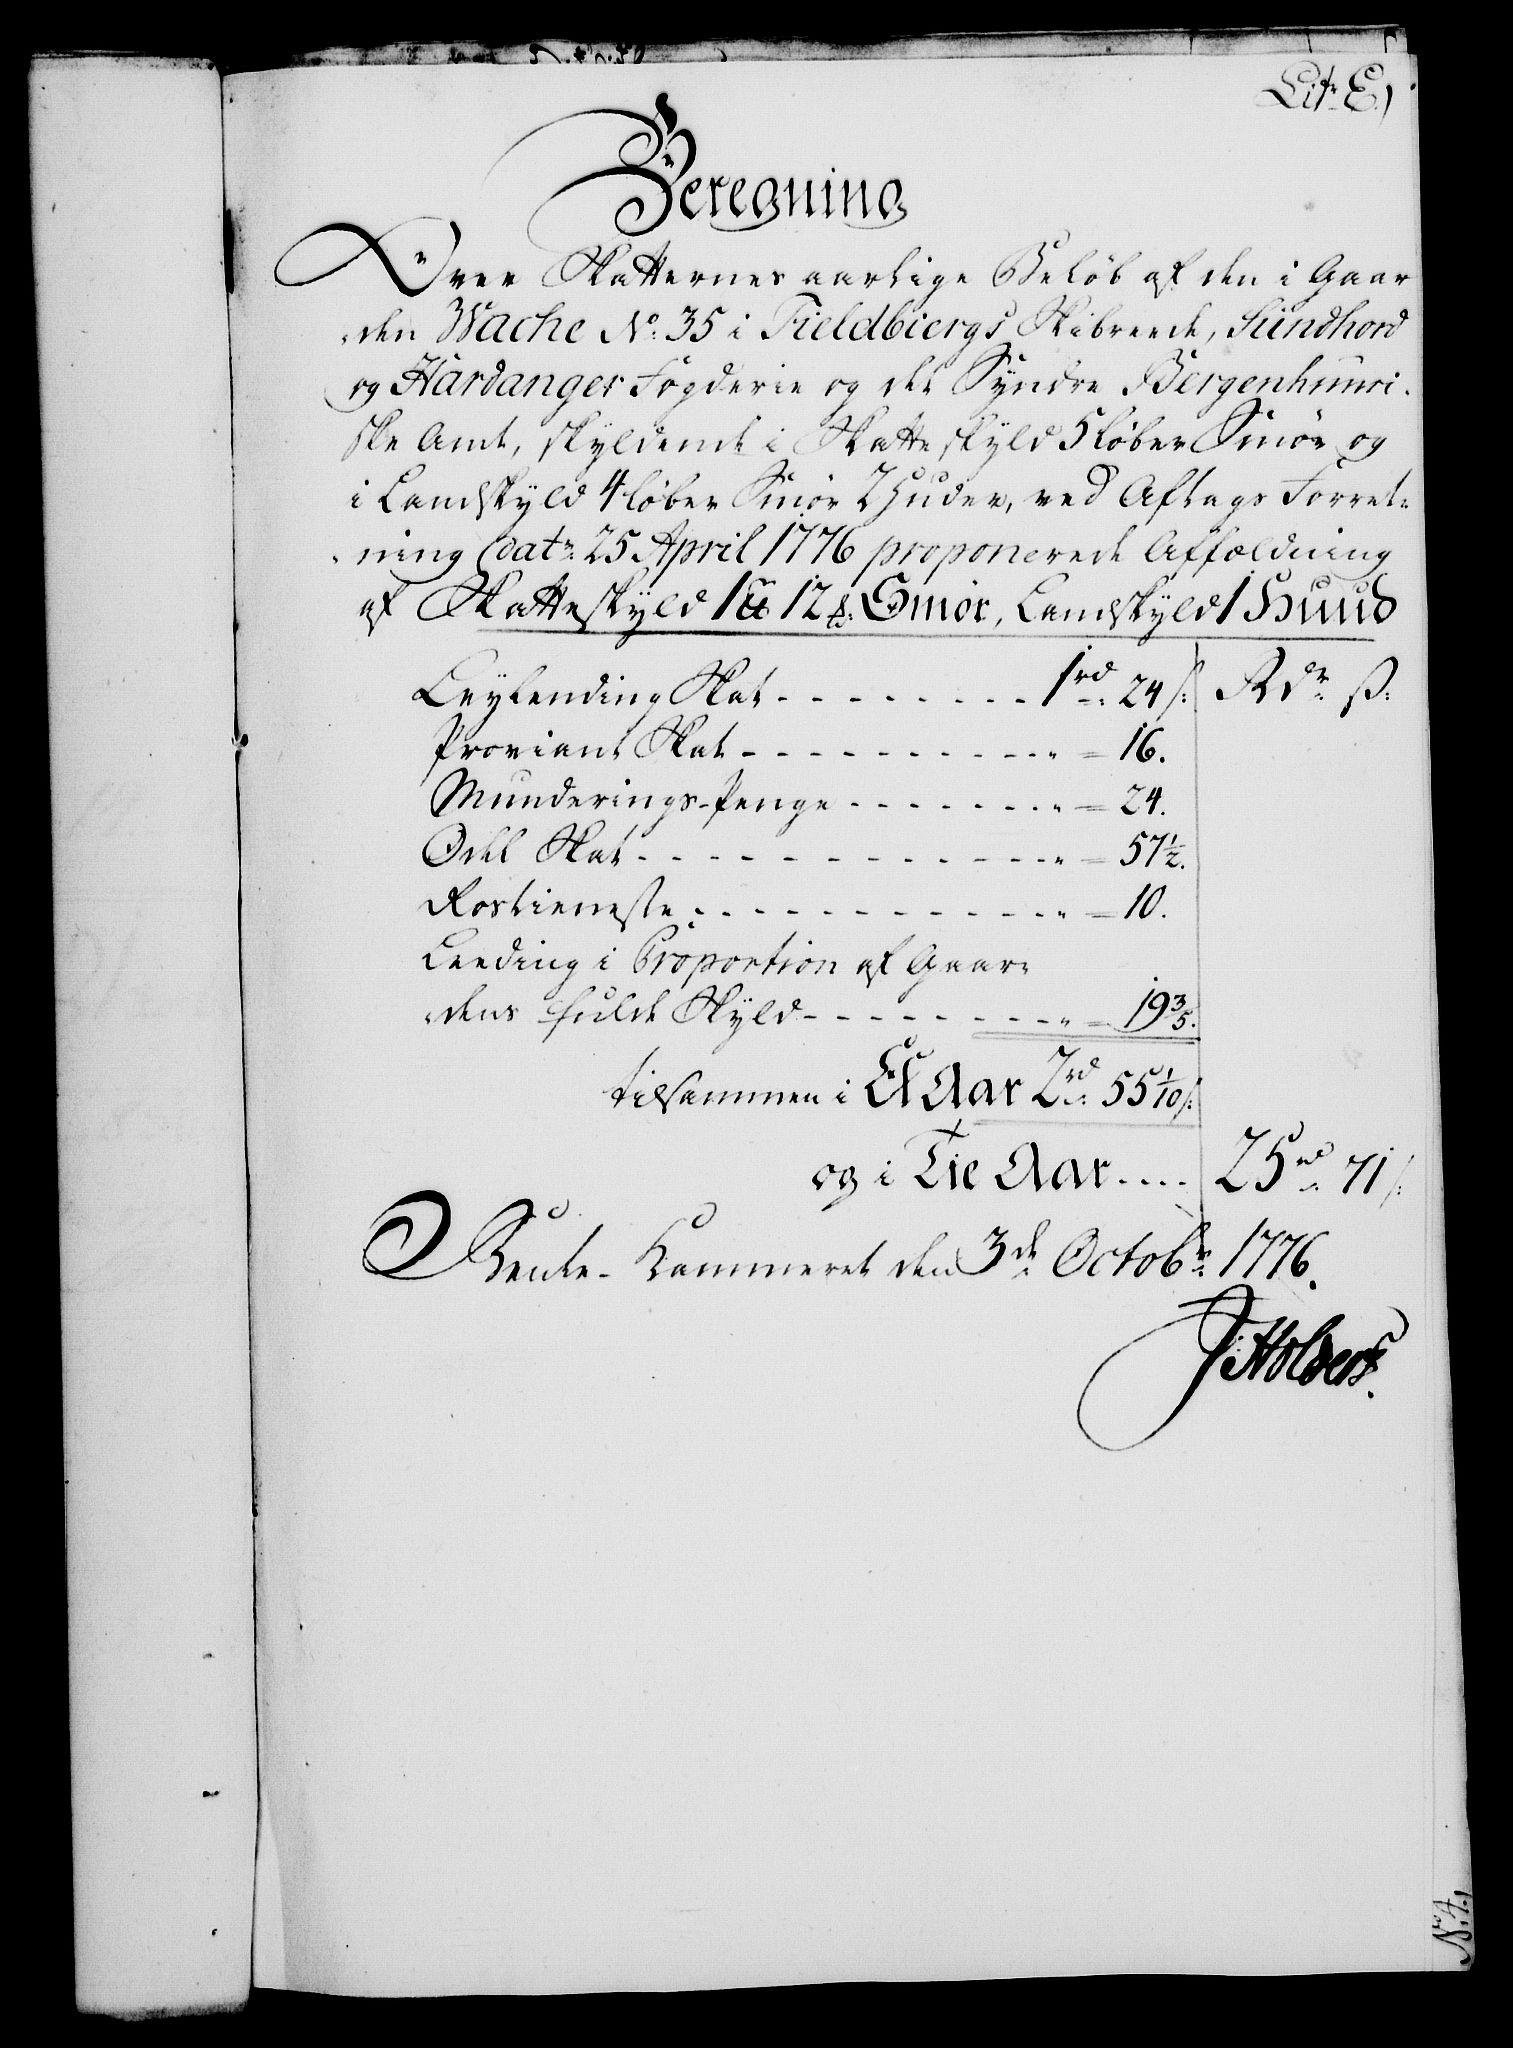 Lit. E)
Beregning
Over Skatternes aarlige Beløb af den i Gaar
-den Wache No. 35 i Fieldbiergs Skibrede, Sundhord
og Hardanger Fogderie og det Syndre Bergenhuusi-
ske Amt, skyldende i Skatteskyld 5 løber Smør og
i Landskyld 4 løber Smør 2 Huder, ved Aftags Forret-
-ning dat. 25 April 1776 proponerede Affældning
af Skatteskyld 1 12 Smør, Landskyld 1 Huud
Leylending Skat - - - - - - - - - 1 rd. 24 s: Rdr. ß:
Proviant Skat - - - - - - - - - - " = 16.
Munderings-Penge - - - - - - - " = 24.
Odel Skat - - - - - - - - - - - - - " = 57½.
Rostieneste - - - - - - - - - - - - " = 10.
Leeding i Proportion af Gaar-
-dens fulde Skyld - - - - - - - - - " = 19 3/5.
tilsammen i Et Aar 2 rd. 55 1/10 s:
og i Tie Aar .... 25 rd. 71 s:
Rente-Kammeret den 3de Octobr. 1776.
Holberg.
No. 4.